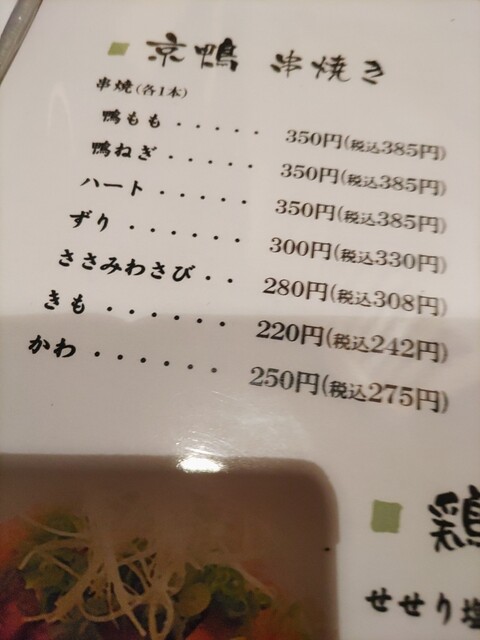 京鴨 串焼き
串焼(各1本)
鴨もも・・・・・350円(税込385円)
鴨ねぎ・・・・・350円(税込385円)
ハート・・・・・350円(税込385円)
ずり・・・・・・300円(税込330円)
ささみわさび・・280円(税込308円)
きも・・・・・・220円(税込242円)
かわ・・・・・・250円(税込275円)
鶏
せせり塩